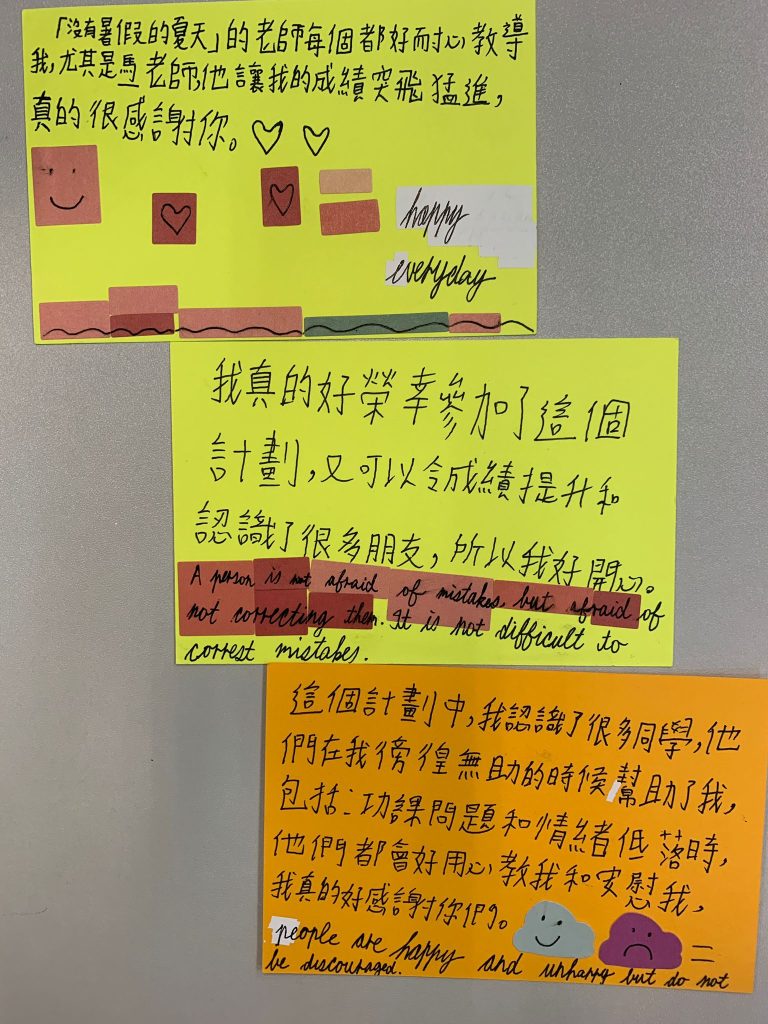 「沒有暑假的夏天」的老師每個都好耐心教導
我,尤其是馬老師,他讓我的成績突飛猛進,
真的很感謝你。
happy
everyday
我真的好榮幸參加了這個
計劃,又可以令成績提升和
認識了很多朋友,所以我好開心。
A person is not afraid of mistakes, but afraid of
not correcting them. It is not difficult to
correst mistakes.
這個計劃中,我認識了很多同學,他
們在我徬徨無助的時候幫助了我,
包括:功課問題和情緒低落時,
他們都會好用心教我和安慰我,
我真的好感謝你們。
people are happy and unharry but do not
be discouraged.